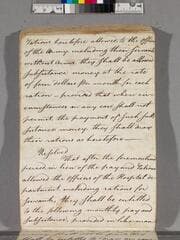 rations heretofore allowed to the officers
of the Army including their servants
without Arms. they shall be allowed
subsistance money at the rate
of four dollars per month for each
ration - provided that when cir-
cumstances in any case shall not
permit the payment of such sub-
sistance money they shall draw
their rations as heretofore
Resolved
That after the
period in lieu of the pay and rations
allowed the officers of the Hospital de-
partment including rations for
servants, they shall be entitled
to the following monthly pay and
subsistance, provided in like man-